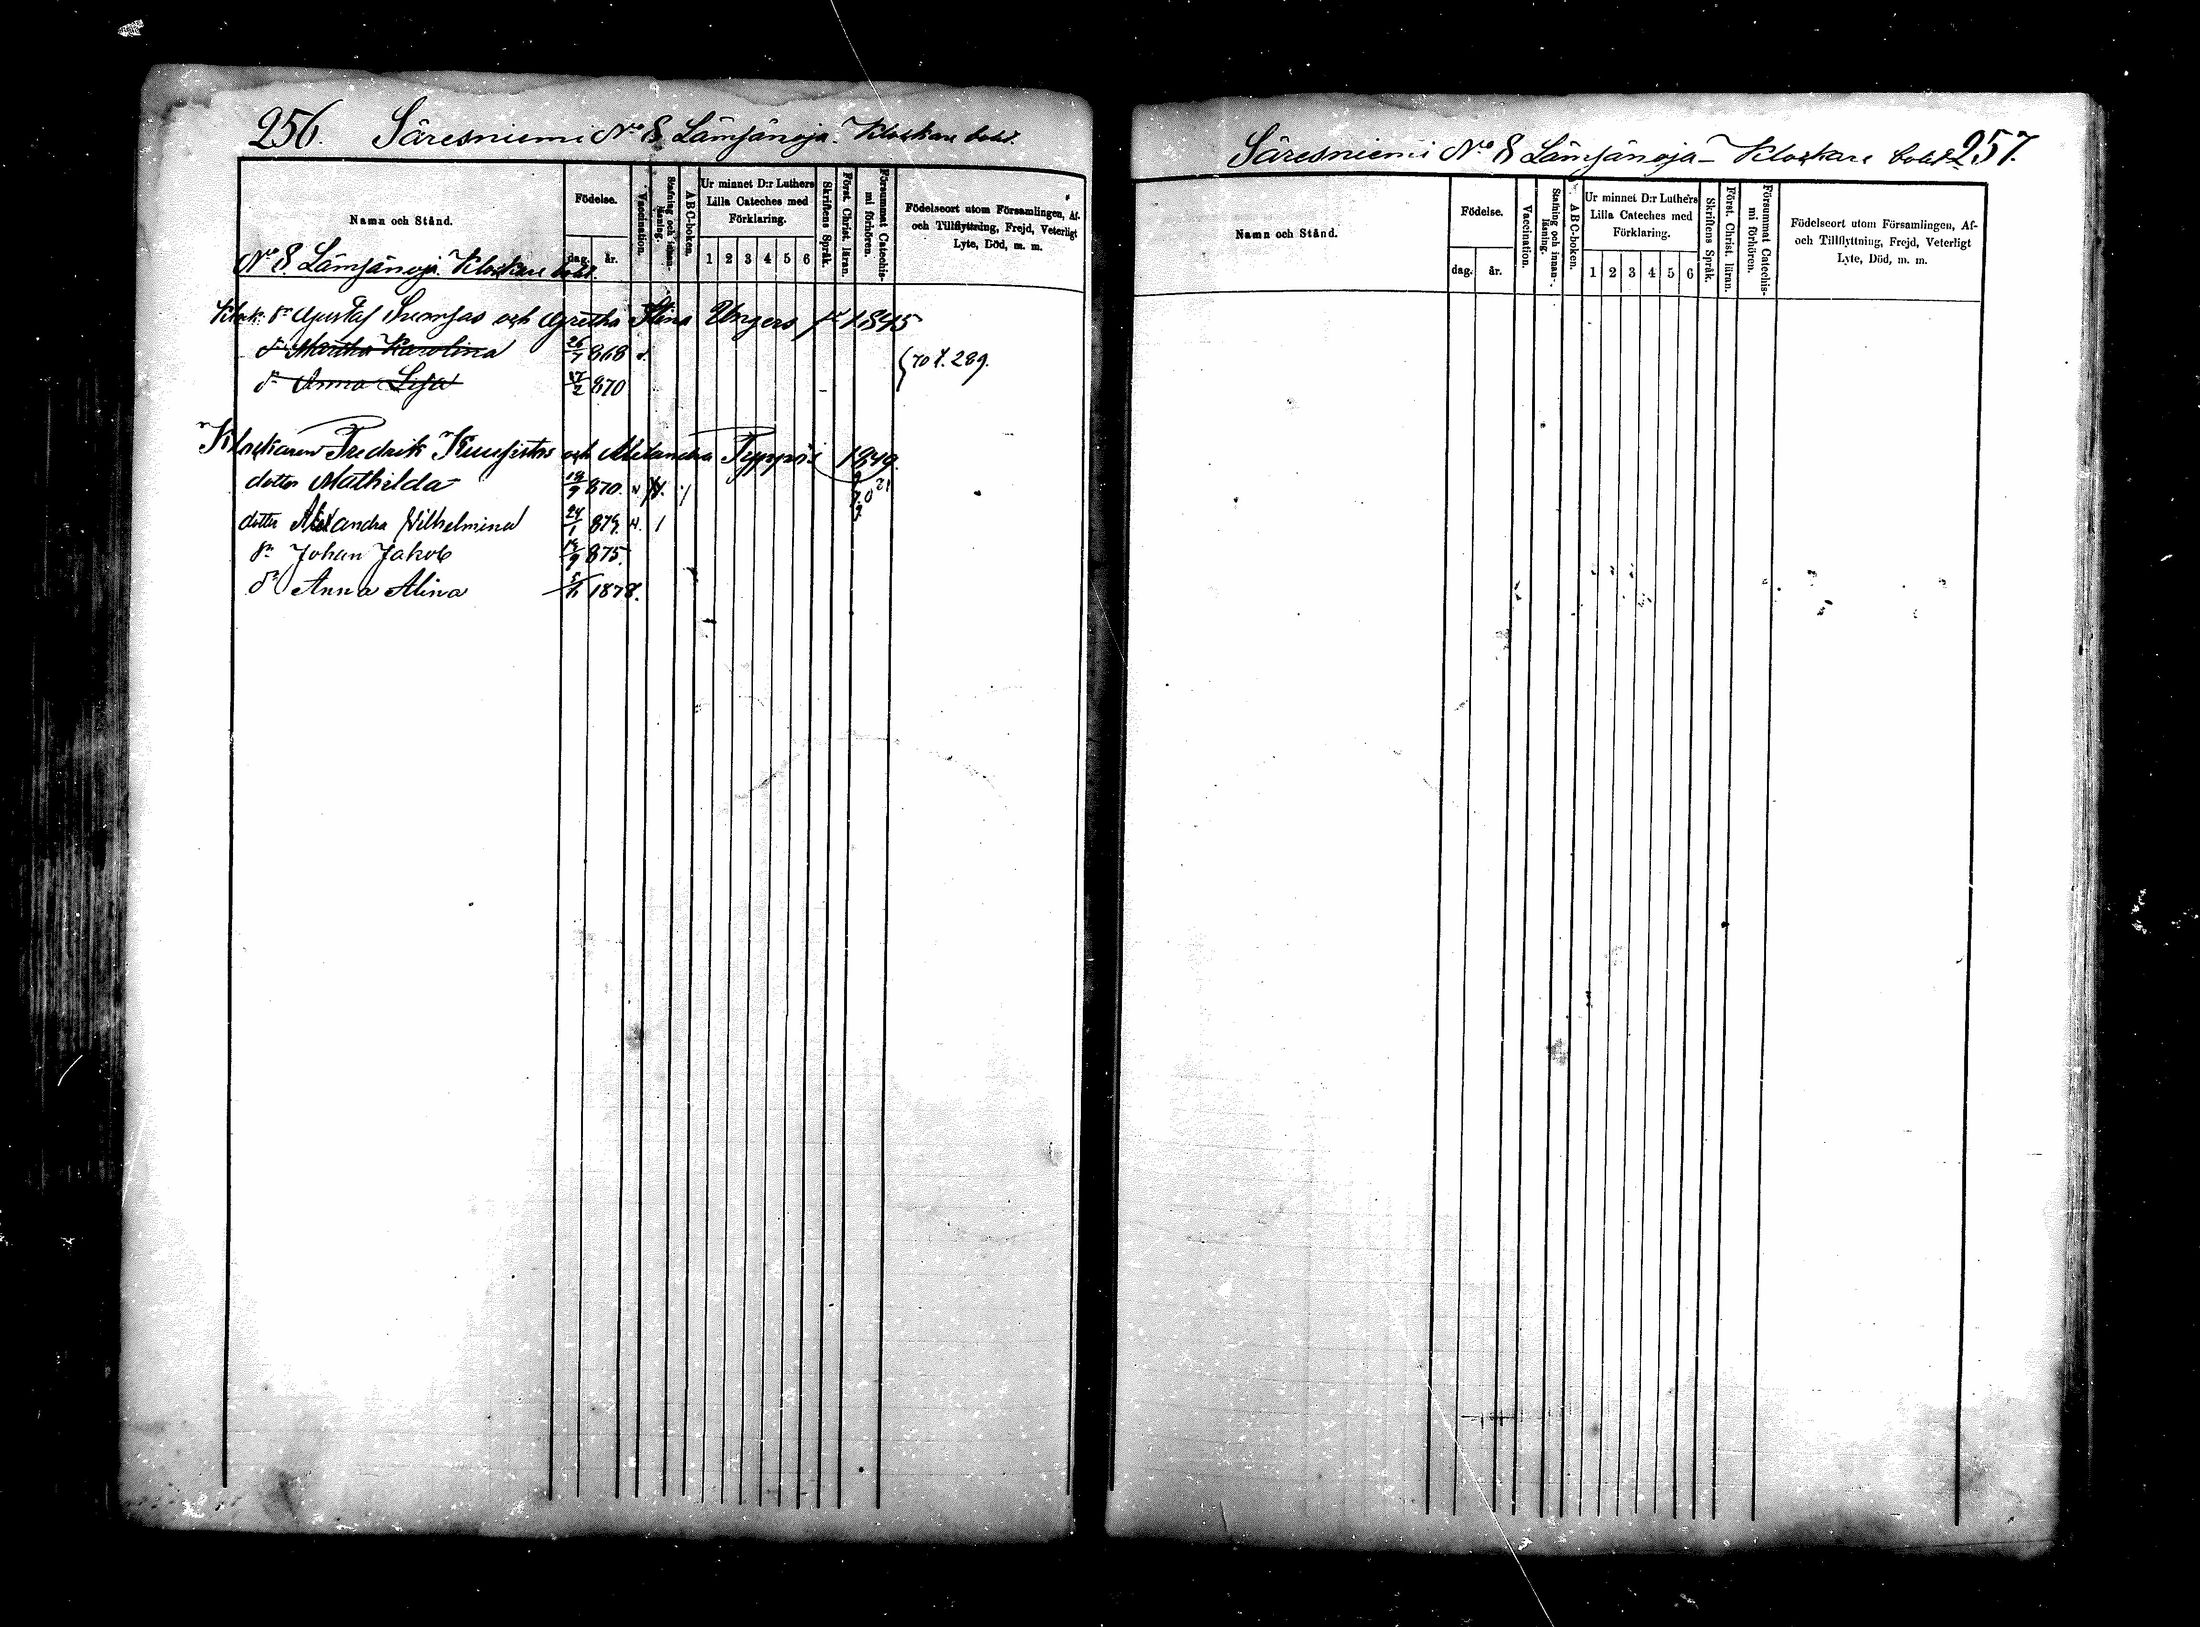 256. Säresniemi No 8 Lämsänoja. Klockare bolst.
Namn och Stånd.
Födelse.
dag. år.
Vaccination.
Stafning och innan-läsning.
ABC-boken.
Ur minnet D:r Luthers Lilla Cateches med Förklaring.
1 2 3 4 5 6
Skriftens Språk.
Först. Christ. läran.
Försummat Catechis-mi förhören.
Födelseort utom Församlingen, Af-
och Tillflyttning, Frejd, Veterligt
Lyte, Död, m. m.
No 8. Lämsänoja Klockare bolst.
Gustaf och Gretha Stina Ungers 1845
Martha Karolina 26/7 868
{70 f. 289.
Anna Lisa 870
Klockaren Fredrik Kuusisto och Alexandra Typpö 1849.
dotter Mathilda 18/9 870.
dotter Alexandra Wilhelmina 24/1 874.
Sn Johan Jakob 875.
Dr Anna Alina 1878.
Säresniemi No 8 Lämsänoja - Klockare bolst. 257.
Namn och Stånd.
Födelse.
dag. år.
Vaccination.
Stafning och innan-läsning.
ABC-boken.
Ur minnet D:r Luthers Lilla Cateches med Förklaring.
1 2 3 4 5 6
Skriftens Språk.
Först. Christ. läran.
Försummat Catechis-mi förhören.
Födelseort utom Församlingen, Af-
och Tillflyttning, Frejd, Veterligt
Lyte, Död, m. m.